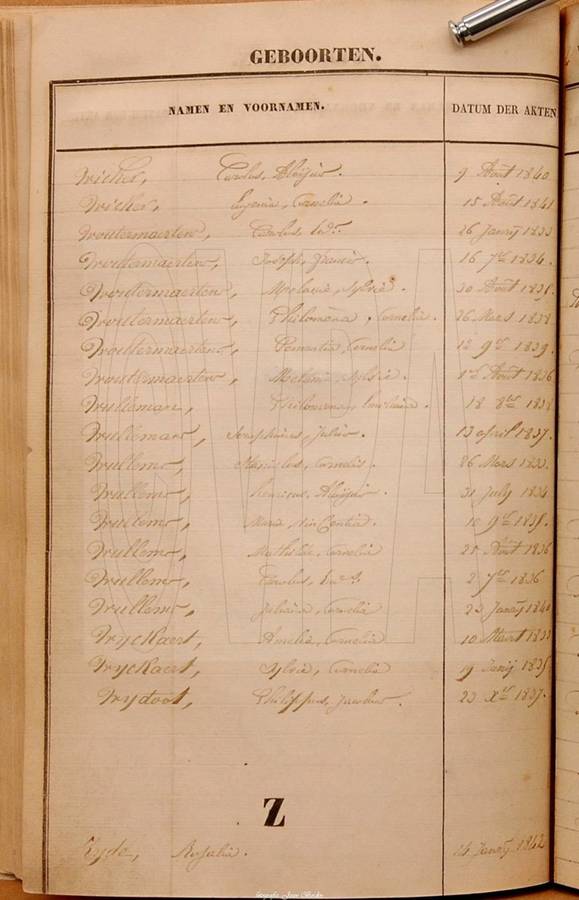 GEBOORTEN.
NAMEN EN VOORNAMEN. DATUM DER AKTEN
Wicher, Carolus, Aloijsius. 9 Août 1840
Wicher, Eugenia, Cornelia. 15 Août 1841
Woutermaerten, Carolus 26 Janrij 1833
Woutermaerten, Joseph, Francis. 16 7re 1834.
Woutermaerten, Melanie, Sylvie. 30 Août 1835.
Woutermaerten, Philomena, Cornelia. 26 Mars 1838
Woutermaerten, Cornelia 12 9re 1839.
Woutermaerten, Melanie, Sylvie. 1er Août 1836
Wulleman, Philomena, 18 8re 1838
Wulleman, Josephinus, Julius. 13 april 1837.
Wullems, Stanislas, Cornelis. 26 Mars 1833.
Wullems, Henricus, Aloijsius. 31 July 1834
Wullems, Maria, VinCentia. 10 9re 1835.
Wullems, Mathilde, Cornelia 25 Août 1836
Wullems, Carolus, 2 7re 1836
Wullems, Juliana, Cornelia 23 Janrij 1840
Wyckaert, Amelia, Cornelia 10 Maart 1833
Wyckaert, Sylvie, Cornelia 19 Junij 1835
Wydoot, Philippus, Jacobus. 23 Xre 1837.
Z
Zyde, Rosalia. 14 Janrij 1842